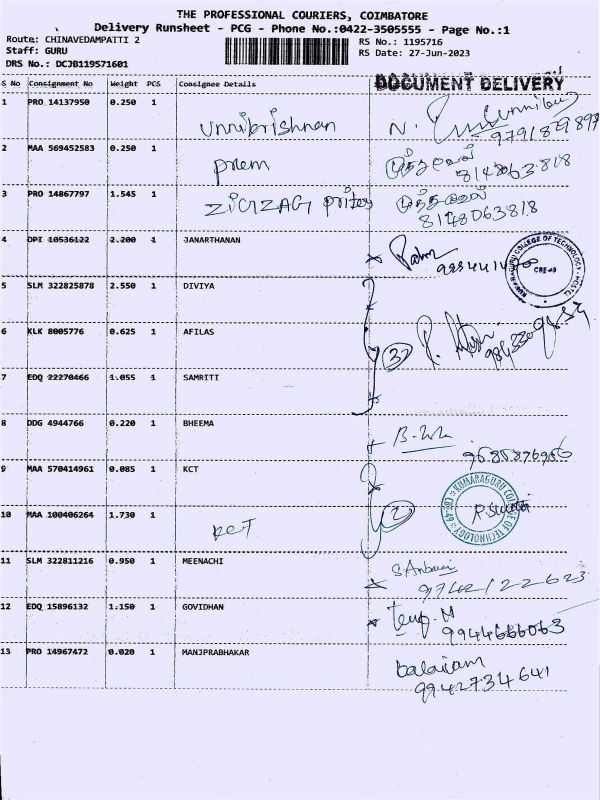 THE PROFESSIONAL COURIERS, COIMBATORE
Delivery Runsheet - PCG - Phone No.:0422-3505555 - Page No.:1
Route: CHINAVEDAMPATTI 2
RS No.: 1195716
Staff: GURU
RS Date: 27-Jun-2023
DRS No.: DCJB119571601
S No Consignment No Weight PCS Consignee Details DOCUMENT DELIVERY
1 PRO 14137950 0.250 1 unnikrishnan N.
9791829897
2 MAA 569452583 0.250 1 prem
8148063818
3 PRO 14867797 1.545 1 ZIGZAG
8148063818
4 OPI 10536122 2.200 1 JANARTHANAN
KUMARAGURU COLLEGE OF TECHNOLOGY
5 SLM 322825878 2.550 1 DIVIYA
6 KLK 8005776 0.625 1 AFILAS
3
7 EDQ 22270466 1.055 1 SAMRITI
8 DDG 4944766 0.220 1 BHEEMA
9 MAA 570414961 0.085 1 KCT
KUMARAGURU COLLEGE OF TECHNOLOGY
10 MAA 100406264 1.730 1 KCT 2
11 SLM 322811216 0.950 1 MEENACHI
97421 22623
12 EDQ 15896132 1.150 1 GOVIDHAN
9944666063
13 PRO 14967472 0.020 1 MANJPRABHAKAR balairam
9942734641